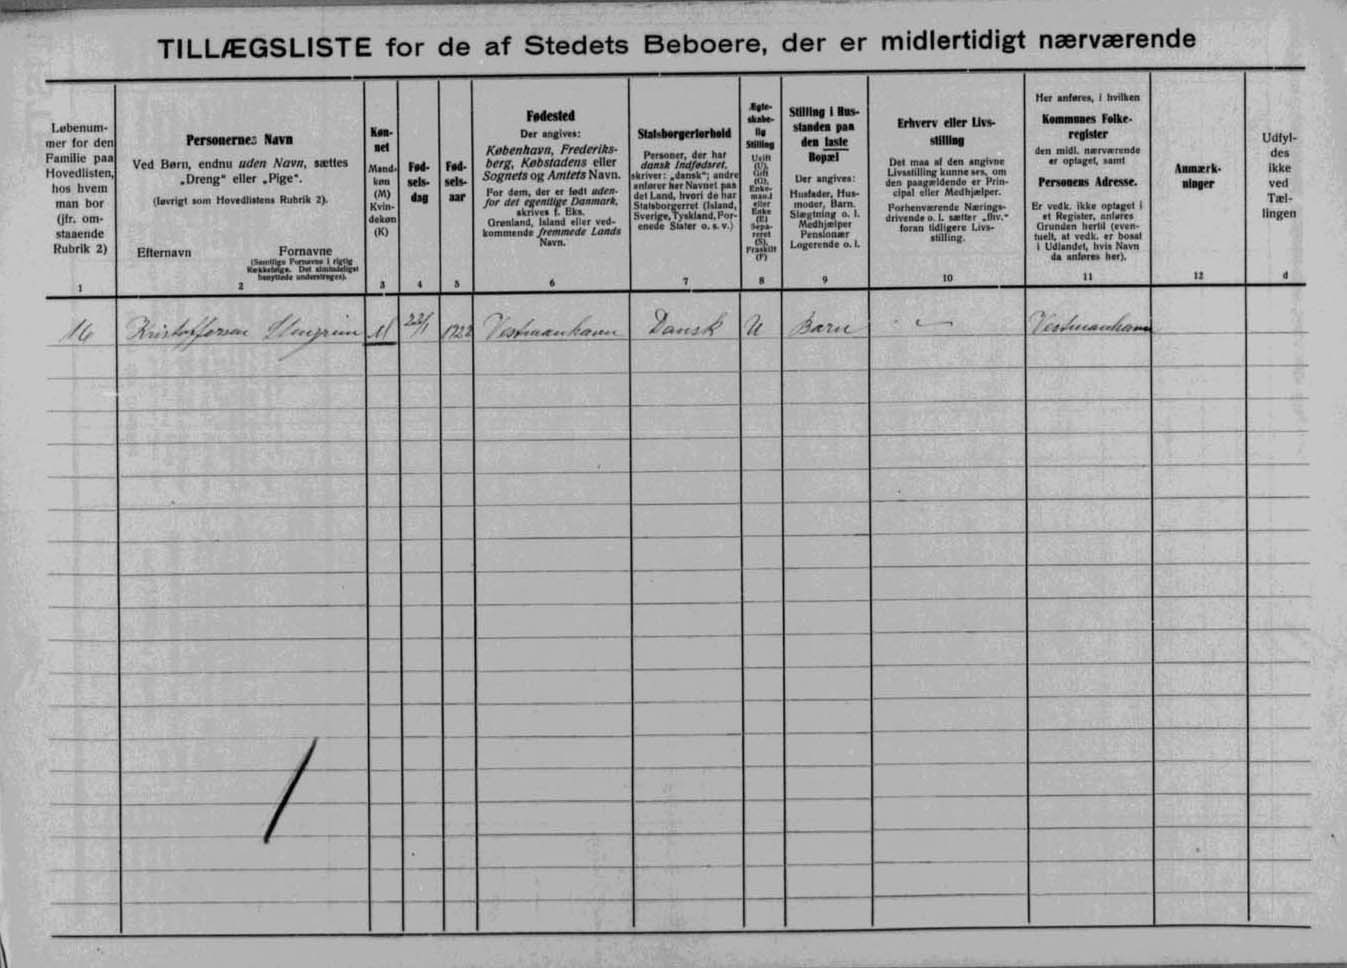 TILLÆGSLISTE for de af Stedets Beboere, der er midlertidigt nærværende
Løbenum-
mer for den
Familie paa
Hovedlisten,
hos hvem
man bor
(jfr. om-
staaende
Rubrik 2)
1
Personernes Navn
Ved Børn, endnu uden Navn, sættes
„Dreng“ eller „Pige“.
(Iøvrigt som Hovedlistens Rubrik 2).
Efternavn Fornavne
(Samtlige Fornavne i rigtig
Rækkefølge. Det almindeligst
benyttede understreges).
2
Køn-
net
Mand-
køn
(M)
Kvin-
dekøn
(K)
3
Fød-
sels-
dag
4
Fød-
sels-
aar
5
Fødested
Der angives:
København, Frederiks-
berg, Købstadens eller
Sognets og Amtets Navn.
For dem, der er født uden-
for det egentlige Danmark,
skrives f. Eks.
Grønland, Island eller ved-
kommende fremmede Lands
Navn.
6
Statsborgerforhold
Personer, der har
dansk Indfødsret,
skriver: „dansk“; andre
anfører her Navnet paa
det Land, hvori de har
Statsborgerret (Island,
Sverige, Tyskland, For-
enede Stater o. s. v.)
7
Ægte-
skabe-
lig
Stilling
Ugift
(U),
Gift
(G),
Enke-
mand
eller
Enke
(E)
Sepa-
reret
(S),
Fraskilt
(F)
8
Stilling i Hus-
standen paa
den faste
Bopæl
Der angives:
Husfader, Hus-
moder, Barn.
Slægtning o. l.
Medhjælper
Pensionær
Logerende o. l.
9
Erhverv eller Livs-
stilling
Det maa af den angivne
Livsstilling kunne ses, om
den paagældende er Prin-
cipal eller Medhjælper.
Forhenværende Nærings-
drivende o. l. sætter „fhv.“
foran tidligere Livs-
stilling.
10
Her anføres, i hvilken
Kommunes Folke-
register
den midl. nærværende
er optaget, samt
Personens Adresse.
Er vedk. ikke optaget i
et Register, anføres
Grunden hertil (even-
tuelt, at vedk. er bosat
i Udlandet, hvis Navn
da anføres her).
11
Anmærk-
ninger
12
Udfyl-
des
ikke
ved
Tæl-
lingen
d
16 Kristoffersen Steingrim M 22/1 1922 Vestmanhavn Dansk U Barn Vestmanhavn